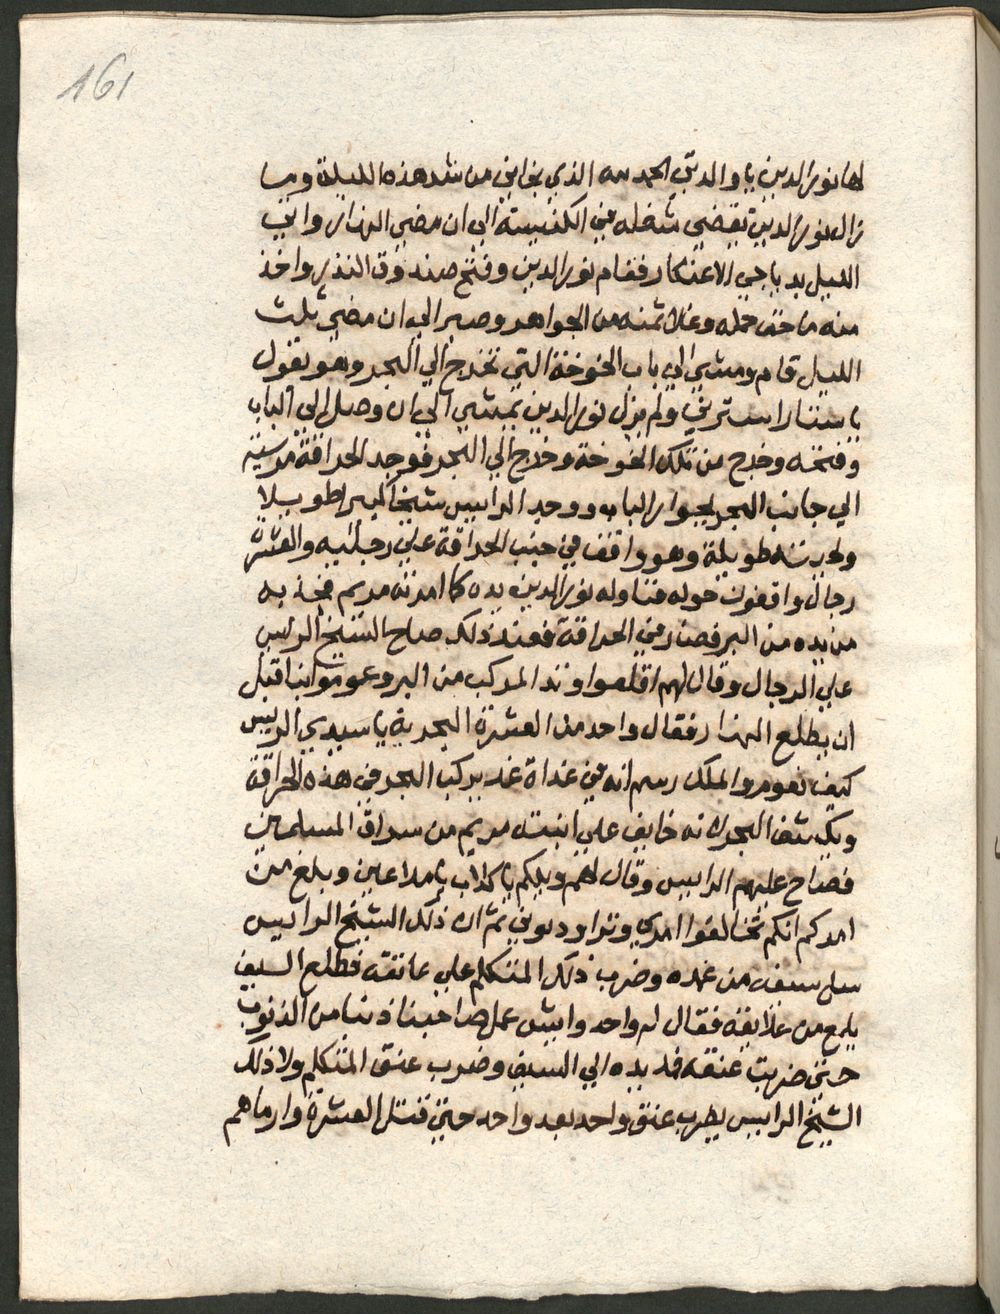 161
لها نور الدين يا والدتي الحمد لله الذي نجاني من شر هذه الليلة وما
زال نور الدين يقضي شغله في الكنيسة الي ان مضي النهار واتي
الليل بدياجي الاعتكار فقام نور الدين وفتح صندوق النذر واخذ
منه ما خف حمله وغلا ثمنه من الجواهر وصبر الي ان مضي ثلث
الليل قام ومشي الي باب الخوخة التي تخرج الي البحر وهو يقول
يا ستار استرني ولم يزل نور الدين يمشي الي ان وصل الي الباب
وفتحه وخرج من تلك الخوخة وخرج الي البحر فوجد الحراقة مرسية
الي جانب البحر بجوار الباب ووجد الرايس شيخا كبيرا طويلا
ولحيته طويلة وهو واقف في جنب الحراقة علي رجليه والعشرة
رجال واقفون حوله فناوله نور الدين يده كما امرته مريم فجذبه
من يده من البر فصار في الحراقة فعند ذلك صاح الشيخ الريس
علي الرجال وقال لهم اقلعوا وتد المركب من البر وعوموا بنا قبل
ان يطلع النهار فقال واحد من العشرة البحرية يا سيدي الريس
كيف نعوم والملك رسم انه في غداة غد يركب البحر في هذه الحراقة
ويكشف البحر لانه خايف علي ابنته مريم من سراق المسلمين
فصاح عليهم الرايس وقال لهم ويلكم يا كلاب يا ملاعين وبلغ من
امركم انكم تخالفوا امري وتراددوني ثم ان ذلك الشيخ الرايس
سل سيفه من غمده وضرب ذلك المتكلم علي عاتقه فطلع السيف
يلمع من علايقه فقال له واحد وايش عمل صاحبنا ذنبا من الذنوب
حتي ضربت عنقه فمد يده الي السيف وضرب عنق المتكلم ولا ذلك
الشيخ الرايس يضرب عنق واحد بعد واحد حتي قتل العشرة وارماهم